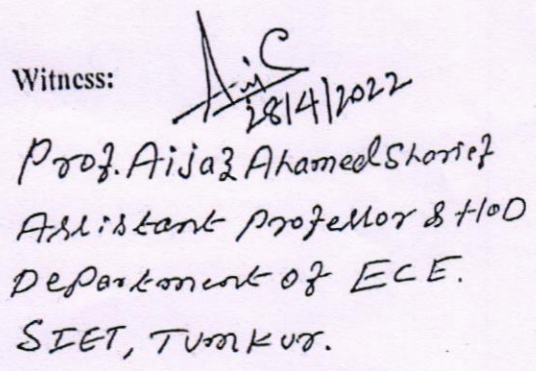 Witness:
28/4/2022
Prof. Aijaz Ahamed Sharief
Assistant Professor & HoD
Department of ECE.
SIET, Tumkur.